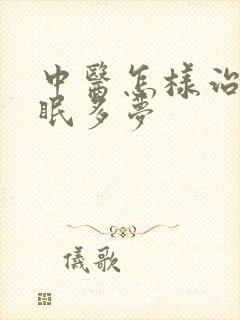 中醫怎樣治
眠多夢
儀歌